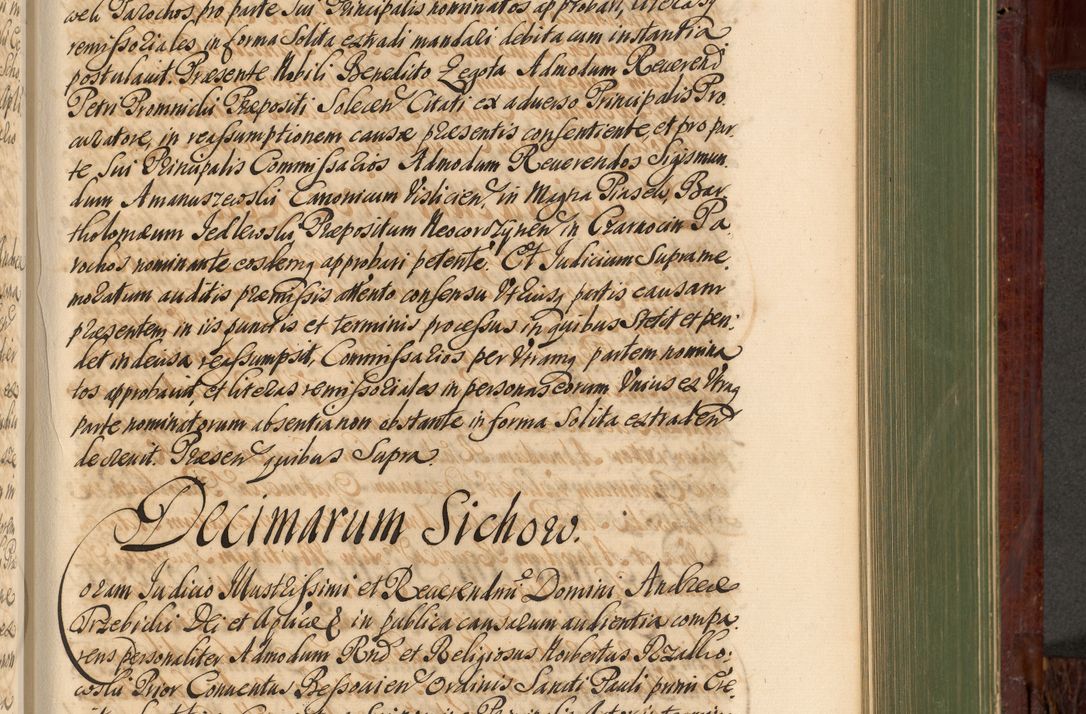 weli Parochos pro parte sui Principalis nominatos approbari, literasq
remissoriales in forma solita extradi mandari debita cum instantia
postulavit. Præsente Nobili Benedicto Zegota Admodum Reverend
Petri Promnicki Præpositi Solecen Citati ex adverso Principalis Pro
curatore, in reassumptionem causæ præsentis consentiente, et pro par,
te sui Principalis Commissarios Admodum Reverendos Sigismun
dum Amanuszewski Canonicum Vislicien, in Magna Piasew, Bar
tholomæum Jedlewski Præpositum Neocordzynen in Czarnocin Pa
rochos nominante eosdemq approbari petente. Et Judicium Suprame
moratum auditis præmissis attento consensu Utriusq partis causam
præsentem in iis punctis et terminis processus in quibus Stetit et pen:
det indecisa reassumpsit, Commissarios per Utramq partem nomina
tos approbavit, et literas remissoriales in personas eorum Unius ex Utraq
parte nominatorum absentia non obstante in forma Solita extraden
decrevit. Præsen quibus Supra.
Decimarum Sichow.
Coram Judicio Illustrissimi et Reverendmi Domini Andreæ
Trzebicki Dei et Aplicæ & in publica causarum audientia compa,
rens personaliter Admodum Rnd et Religiosus Norbertus Rzalko:
wski Prior Conventus Bessovien Ordinis Sancti Pauli primi Ere